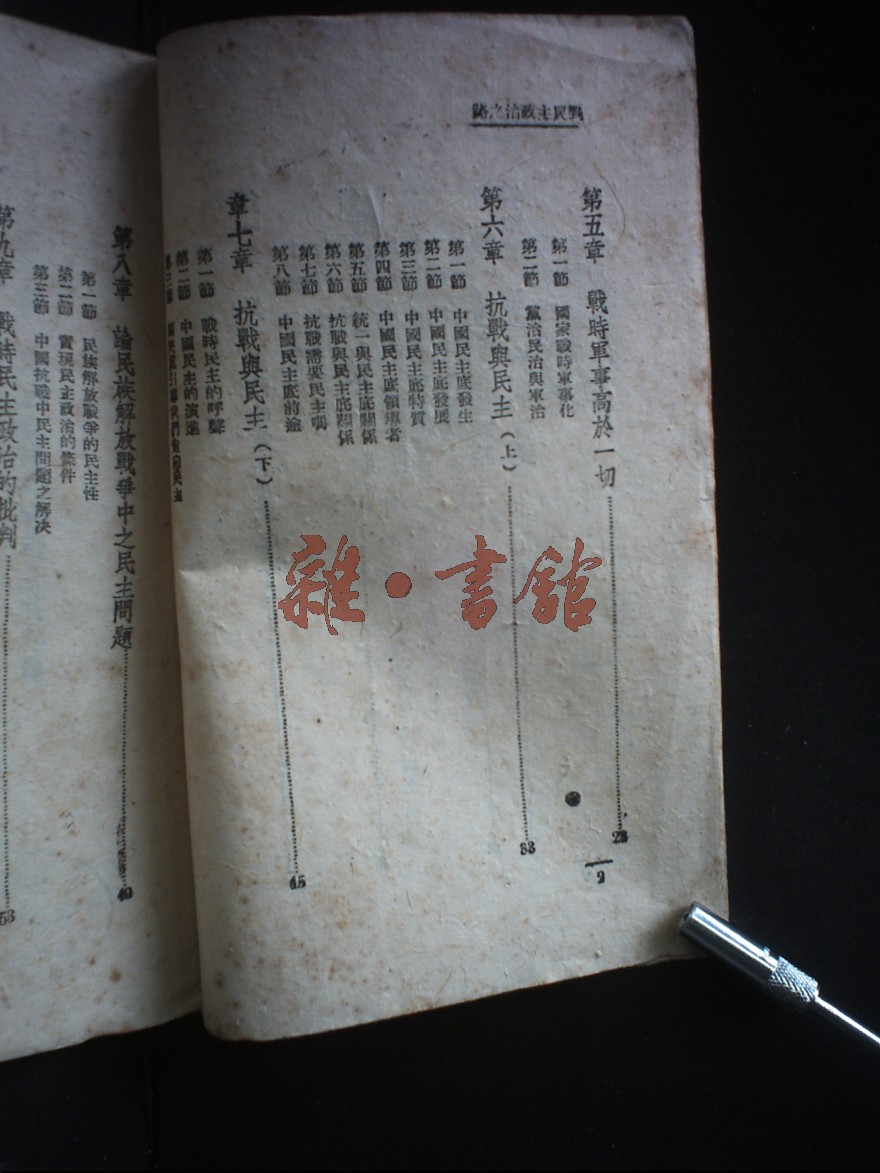 到民主政治之路
第五章　戰時軍事高於一切
23
第一節　國家戰時軍事化
第二節　黨治民治與軍治
第六章　抗戰與民主（上）
33
第一節　中國民主底發生
第二節　中國民主底發展
第三節　中國民主底特質
第四節　中國民主底領導者
第五節　統一與民主底關係
第六節　抗戰與民主底關係
第七節　抗戰需要民主嗎
第八節　中國民主底前途
章七章　抗戰與民主（下）
45
第一節　戰時民主的呼聲
第二節　中國民主的演進
第三節
2
第八章　論民族解放戰爭中之民主問題
49
第一節　民族解放戰爭的民主性
第二節　實現民主政治的條件
第三節　中國抗戰中民主問題之解決
第九章　戰時民主政治的批判
53
雜·書館